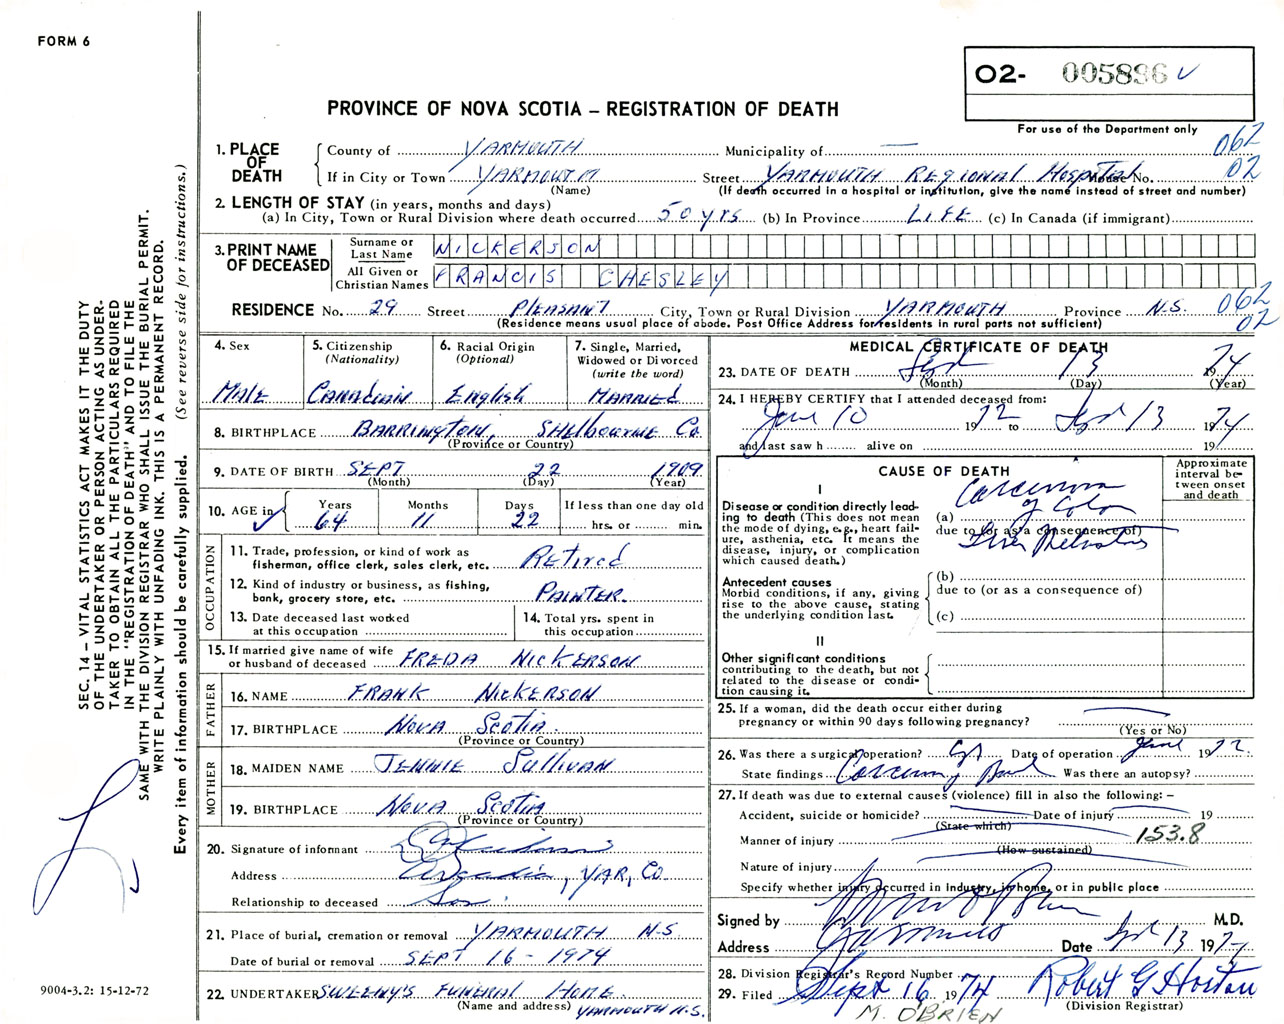 FORM 6
O2- 005896
PROVINCE OF NOVA SCOTIA – REGISTRATION OF DEATH
For use of the Department only
062
02
1. PLACE OF DEATH
County of YARMOUTH Municipality of —
If in City or Town YARMOUTH Street YARMOUTH REGIONAL HOSPITAL House No.
(Name) (If death occurred in a hospital or institution, give the name instead of street and number)
2. LENGTH OF STAY (in years, months and days)
(a) In City, Town or Rural Division where death occurred 50 yrs (b) In Province LIFE (c) In Canada (if immigrant)
3. PRINT NAME OF DECEASED
Surname or Last Name NICKERSON
All Given or Christian Names FRANCIS CHESLEY
RESIDENCE No. 29 Street PLEASANT City, Town or Rural Division YARMOUTH Province N.S.
062
02
(Residence means usual place of abode. Post Office Address for residents in rural parts not sufficient)
4. Sex
Male
5. Citizenship
(Nationality)
Canadian
6. Racial Origin
(Optional)
English
7. Single, Married, Widowed or Divorced
(write the word)
MARRIED
8. BIRTHPLACE BARRINGTON, SHELBOURNE Co
(Province or Country)
9. DATE OF BIRTH SEPT 22 1909
(Month) (Day) (Year)
10. AGE in Years Months Days If less than one day old
64 11 22 hrs. or min.
OCCUPATION
11. Trade, profession, or kind of work as fisherman, office clerk, sales clerk, etc. Retired
12. Kind of industry or business, as fishing, bank, grocery store, etc. PAINTER.
13. Date deceased last worked at this occupation
14. Total yrs. spent in this occupation
15. If married give name of wife or husband of deceased FREDA NICKERSON
FATHER
16. NAME FRANK NICKERSON
17. BIRTHPLACE NOVA SCOTIA.
(Province or Country)
MOTHER
18. MAIDEN NAME JENNIE SULLIVAN
19. BIRTHPLACE NOVA SCOTIA
(Province or Country)
20. Signature of informant
Address Arcadia, YAR, Co.
Relationship to deceased Son.
21. Place of burial, cremation or removal YARMOUTH N.S.
Date of burial or removal SEPT 16 - 1974
22. UNDERTAKER SWEENY'S FUNERAL HOME.
(Name and address) YARMOUTH N.S.
MEDICAL CERTIFICATE OF DEATH
23. DATE OF DEATH Sept 13 1974
(Month) (Day) (Year)
24. I HEREBY CERTIFY that I attended deceased from:
June 10 1972 to Sept 13 1974
and last saw h alive on 19
CAUSE OF DEATH
Approximate interval between onset and death
I
Disease or condition directly leading to death (This does not mean the mode of dying, e.g., heart failure, asthenia, etc. It means the disease, injury, or complication which caused death.)
(a) Carcinoma of Colon
due to (or as a consequence of)
Liver Metastasis
Antecedent causes
Morbid conditions, if any, giving rise to the above cause, stating the underlying condition last.
(b)
due to (or as a consequence of)
(c)
II
Other significant conditions
contributing to the death, but not related to the disease or condition causing it.
25. If a woman, did the death occur either during pregnancy or within 90 days following pregnancy?
(Yes or No)
26. Was there a surgical operation? Date of operation June 1972
State findings Carcinoma of Bowel Was there an autopsy?
27. If death was due to external causes (violence) fill in also the following: –
Accident, suicide or homicide? Date of injury 19
(State which)
Manner of injury 153.8
(How sustained)
Nature of injury
Specify whether injury occurred in Industry, in home, or in public place
Signed by M.D.
Address Yarmouth Date Sept 13 1974
28. Division Registrar's Record Number
29. Filed Sept 16 1974 Robert G Horton
(Division Registrar)
M. O'BRIEN
SEC. 14 – VITAL STATISTICS ACT MAKES IT THE DUTY
OF THE UNDERTAKER OR PERSON ACTING AS UNDER-
TAKER TO OBTAIN ALL THE PARTICULARS REQUIRED
IN THE "REGISTRATION OF DEATH" AND TO FILE THE
SAME WITH THE DIVISION REGISTRAR WHO SHALL ISSUE THE BURIAL PERMIT.
WRITE PLAINLY WITH UNFADING INK. THIS IS A PERMANENT RECORD.
Every item of information should be carefully supplied. (See reverse side for instructions.)
9004-3.2: 15-12-72